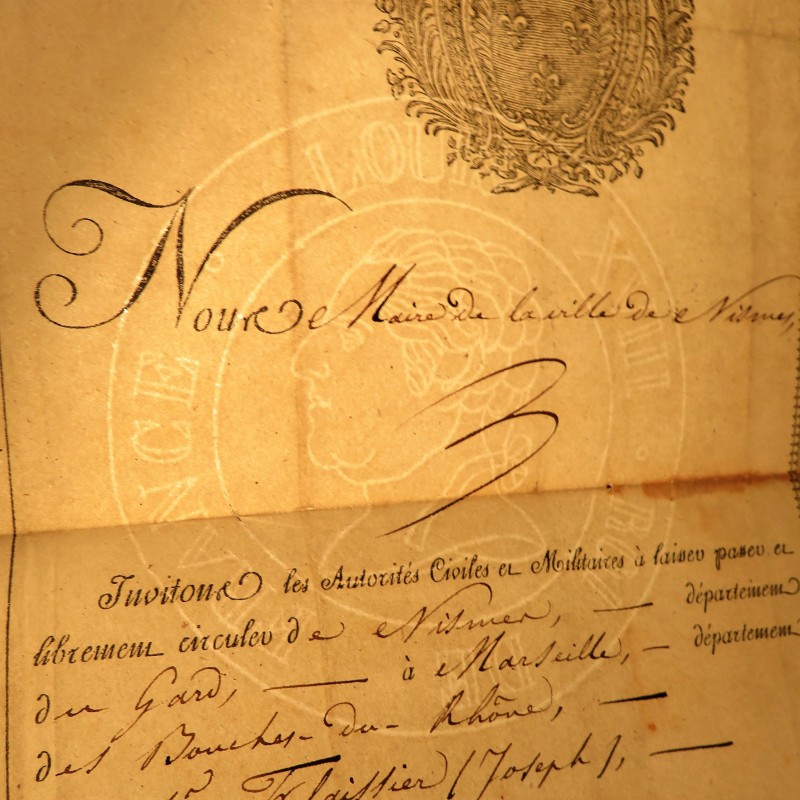 LOUIS XVIII
Nous Maire de la ville de Nismes,
Invitons les Autorités Civiles et Militaires à laisser passer et
librement circuler de Nismes, — département
du Gard, — à Marseille, — département
des Bouches-du-Rhône, —
(Joseph), —